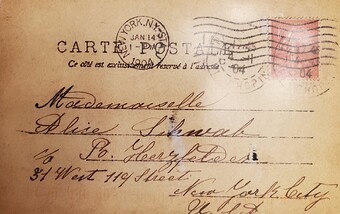 NEW YORK, N.Y. STA.
JAN 14
11-PM
1904
04
CARTE POSTALE
Ce côté est exclusivement réservé à l'adresse
Mademoiselle
Alise Schwab
c/o R. Herzfelder
31 West 119 Street
New York City